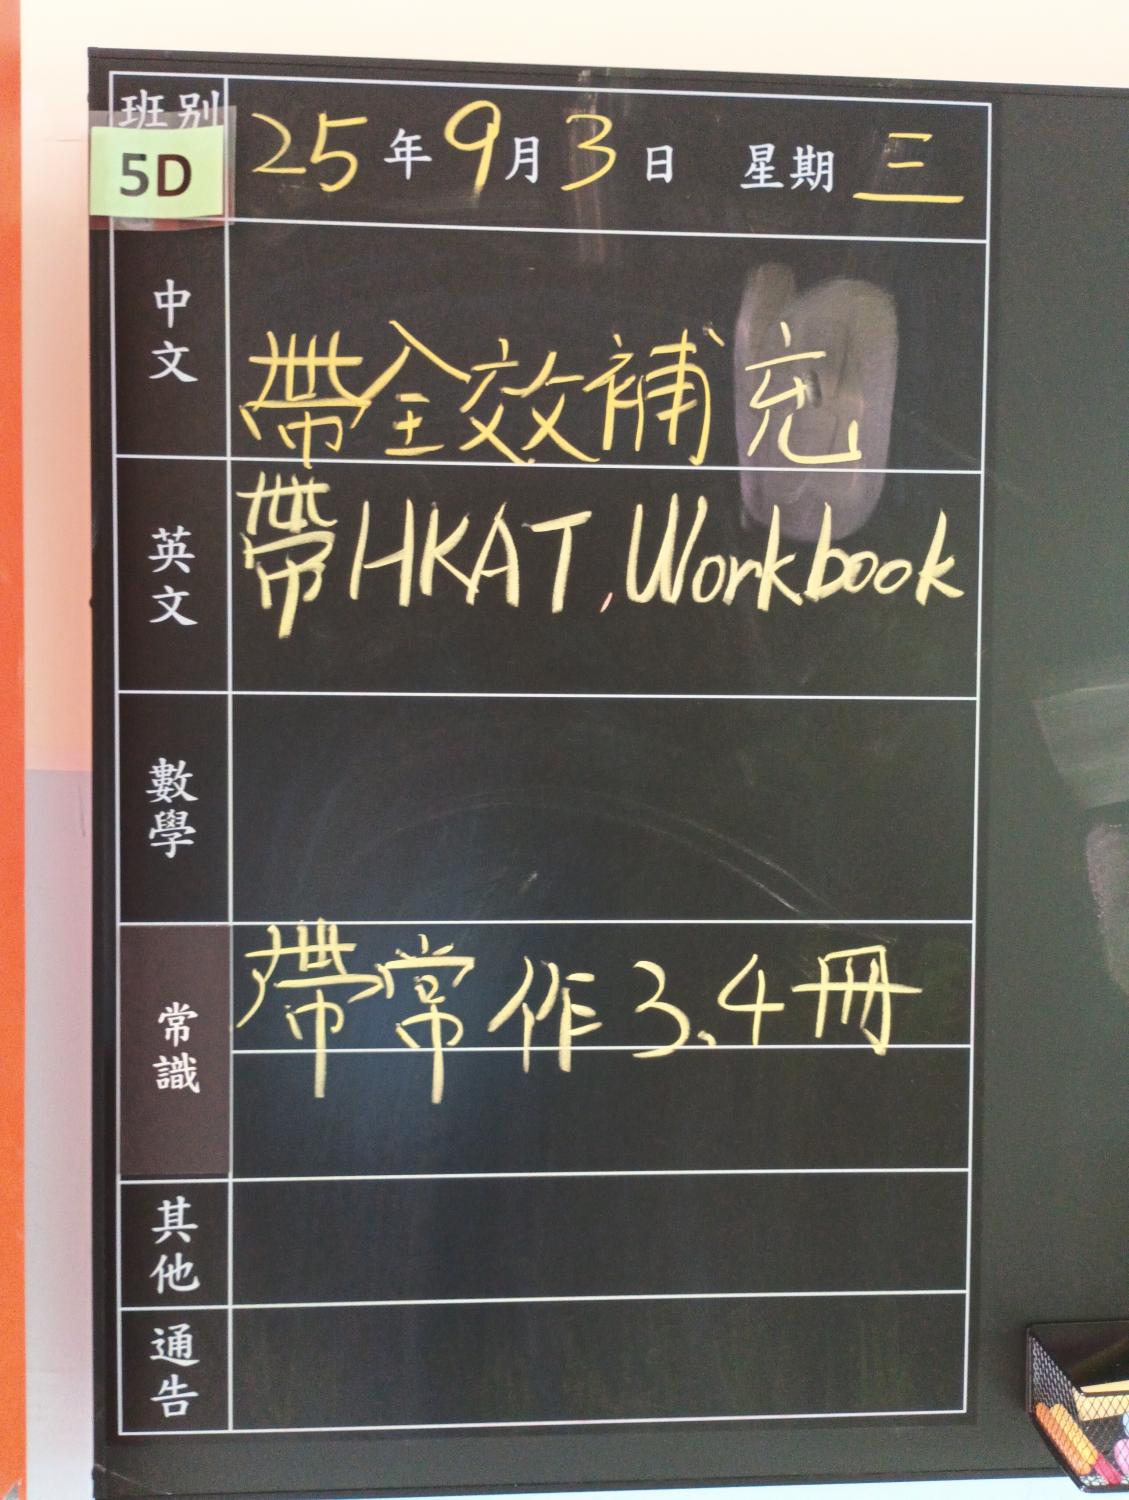 班別
5D
25年9月3日 星期三
中文
帶全效補充
英文
帶HKAT,Workbook
數學
常識
帶常作3、4冊
其他
通告